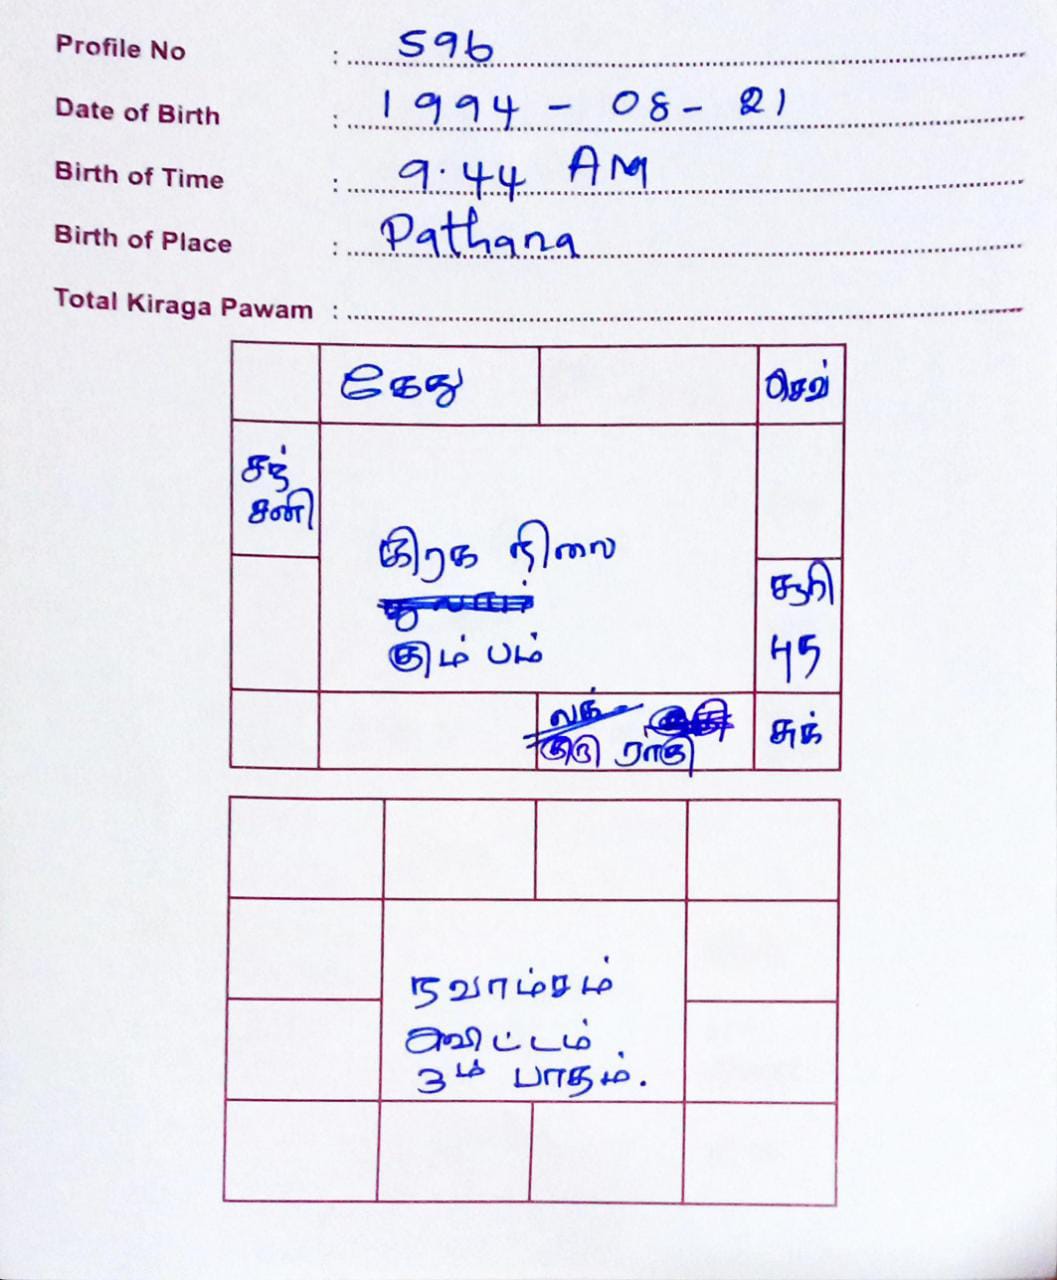 Profile No : 596
Date of Birth : 1994 - 08 - 21
Birth of Time : 9.44 AM
Birth of Place : Pathana
Total Kiraga Pawam :
கேது
செவ்
சந்
சனி
கிரக நிலை
கும்பம்
சூரி
புத்
லக்
குரு ராகு
சுக்
நவாம்சம்
அவிட்டம்
3ம் பாதம்.